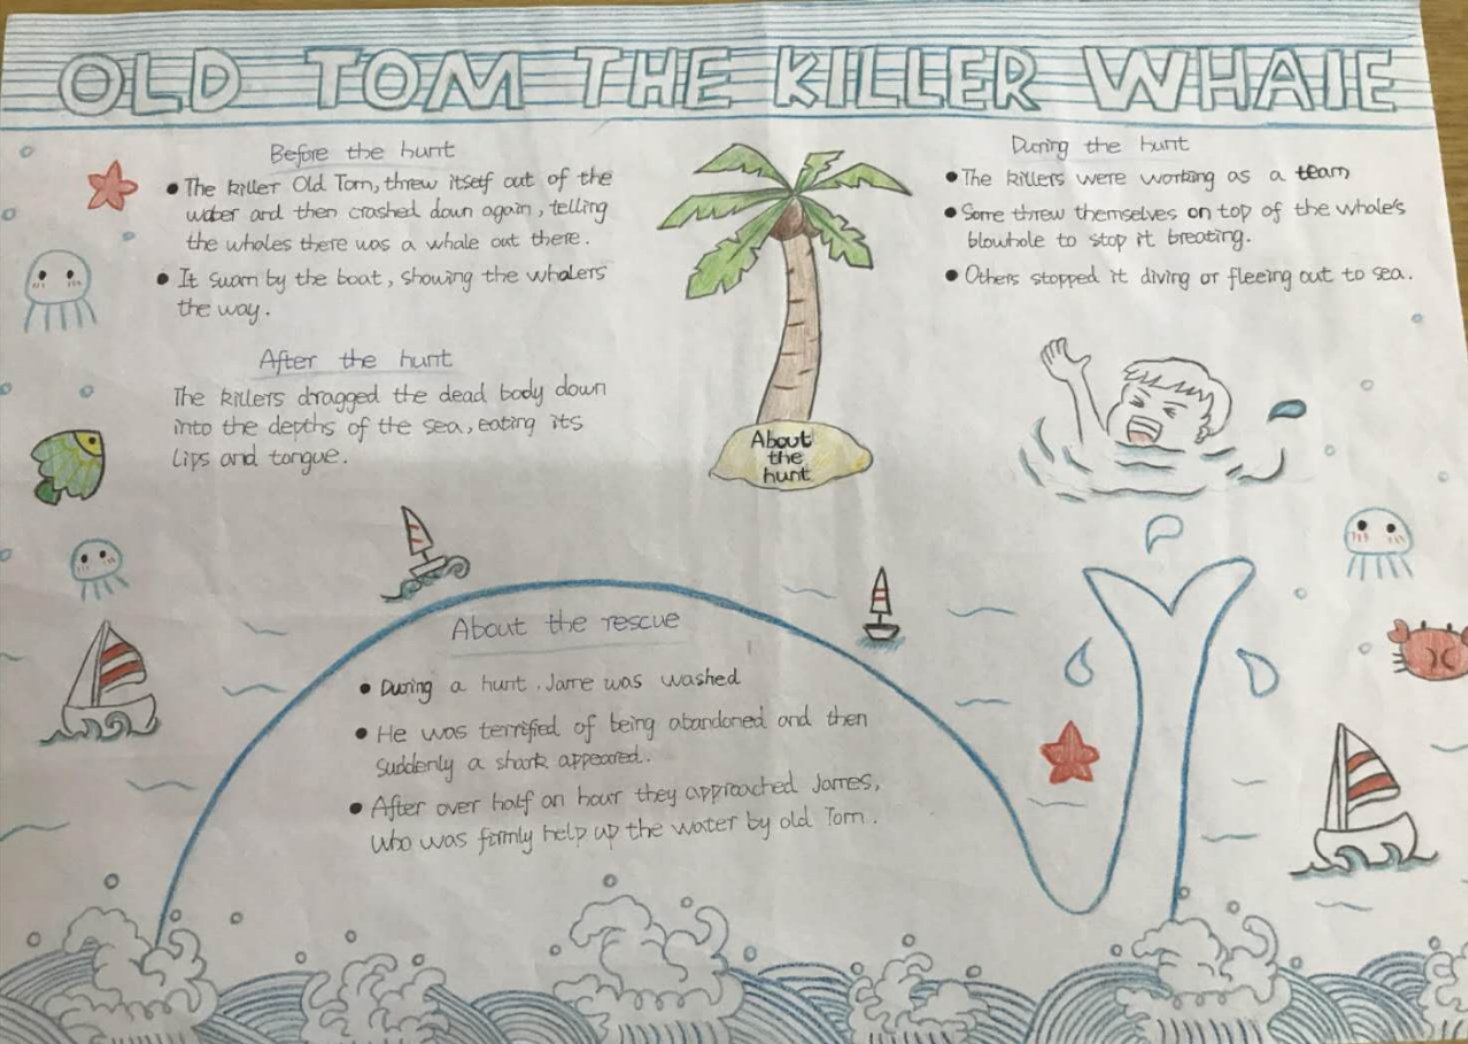 OLD TOM THE KILLER WHAIE
Before the hunt
• The killer Old Tom, threw itself out of the
water and then crashed down again, telling
the whales there was a whale out there.
• It swam by the boat, showing the whalers
the way.
After the hunt
The killers dragged the dead body down
into the depths of the sea, eating its
Lips and tongue.
About
the
hunt
During the hunt
• The killers were working as a team
• Some threw themselves on top of the whale's
blowhole to stop it breating.
• Others stopped it diving or fleeing out to sea.
About the rescue
• During a hunt. Jame was washed
• He was terrified of being abandoned and then
suddenly a shark appeared.
• After over half an hour they approached James,
who was firmly help up the water by old Tom.